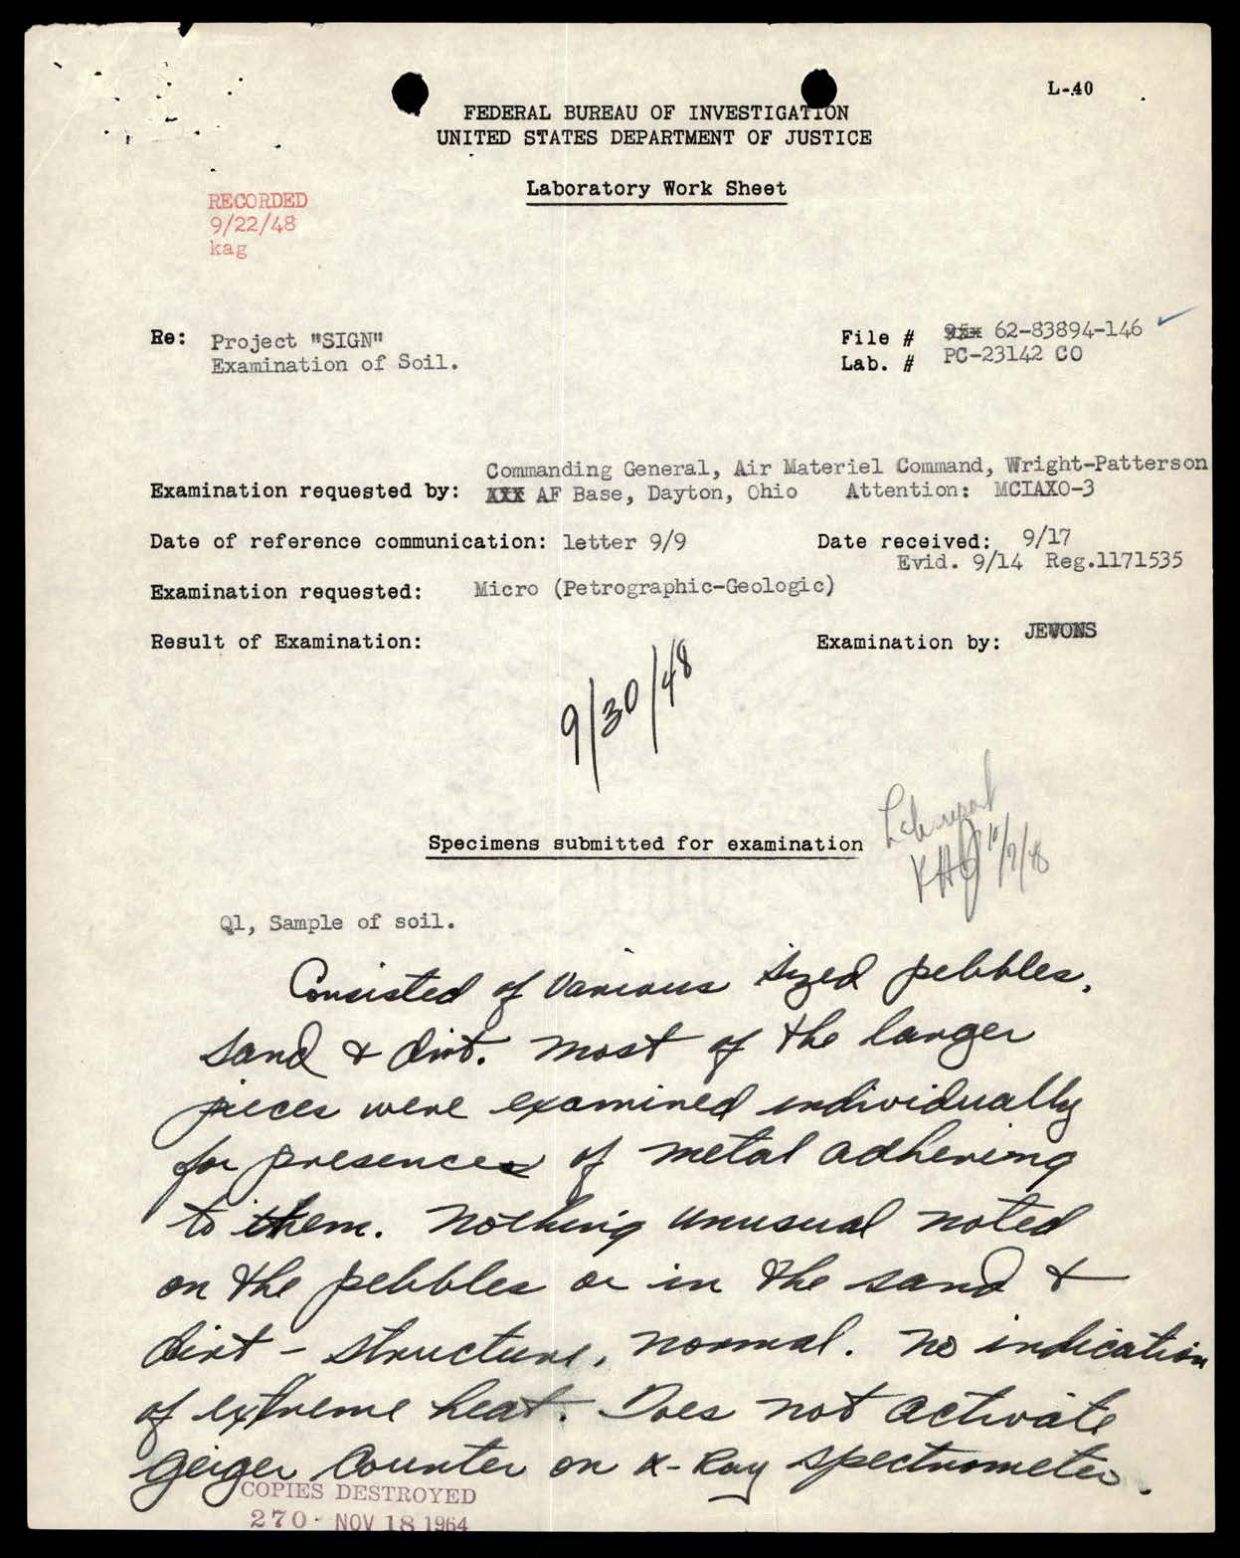 L-40
FEDERAL BUREAU OF INVESTIGATION
UNITED STATES DEPARTMENT OF JUSTICE
Laboratory Work Sheet
RECORDED
9/22/48
kag
Re: Project "SIGN"
Examination of Soil.
File # 62-83894-146
Lab. # PC-23142 CO
Commanding General, Air Materiel Command, Wright-Patterson
Examination requested by: AF Base, Dayton, Ohio Attention: MCIAXO-3
Date of reference communication: letter 9/9 Date received: 9/17
Evid. 9/14 Reg.1171535
Examination requested: Micro (Petrographic-Geologic)
Result of Examination: Examination by: JEVONS
9/30/48
Lab report
10/7/48
Specimens submitted for examination
Q1, Sample of soil.
Consisted of various sized pebbles,
sand & dirt. Most of the larger
pieces were examined individually
for presence of metal adhering
to them. Nothing unusual noted
on the pebbles or in the sand &
dirt - structure, normal. No indication
of extreme heat. Does not activate
Geiger Counter on X-Ray spectrometer.
COPIES DESTROYED
270 NOV 18 1964